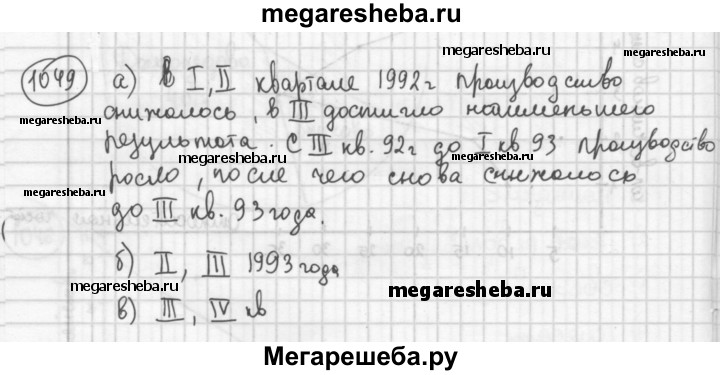 megaresheba.ru
1049 а) В I, II квартале 1992 г производство
megaresheba.ru
снижалось, в III достигло наименьшего
megaresheba.ru
megaresheba.ru
результата. С III кв. 92г до I кв 93 производство
megaresheba.ru
megaresheba.ru
росло, после чего снова снижалось
megaresheba.ru
до III кв. 93 года.
б) II, III 1993 года
megaresheba.ru
megaresheba.ru
в) III, IV кв
Мегарешеба.ру